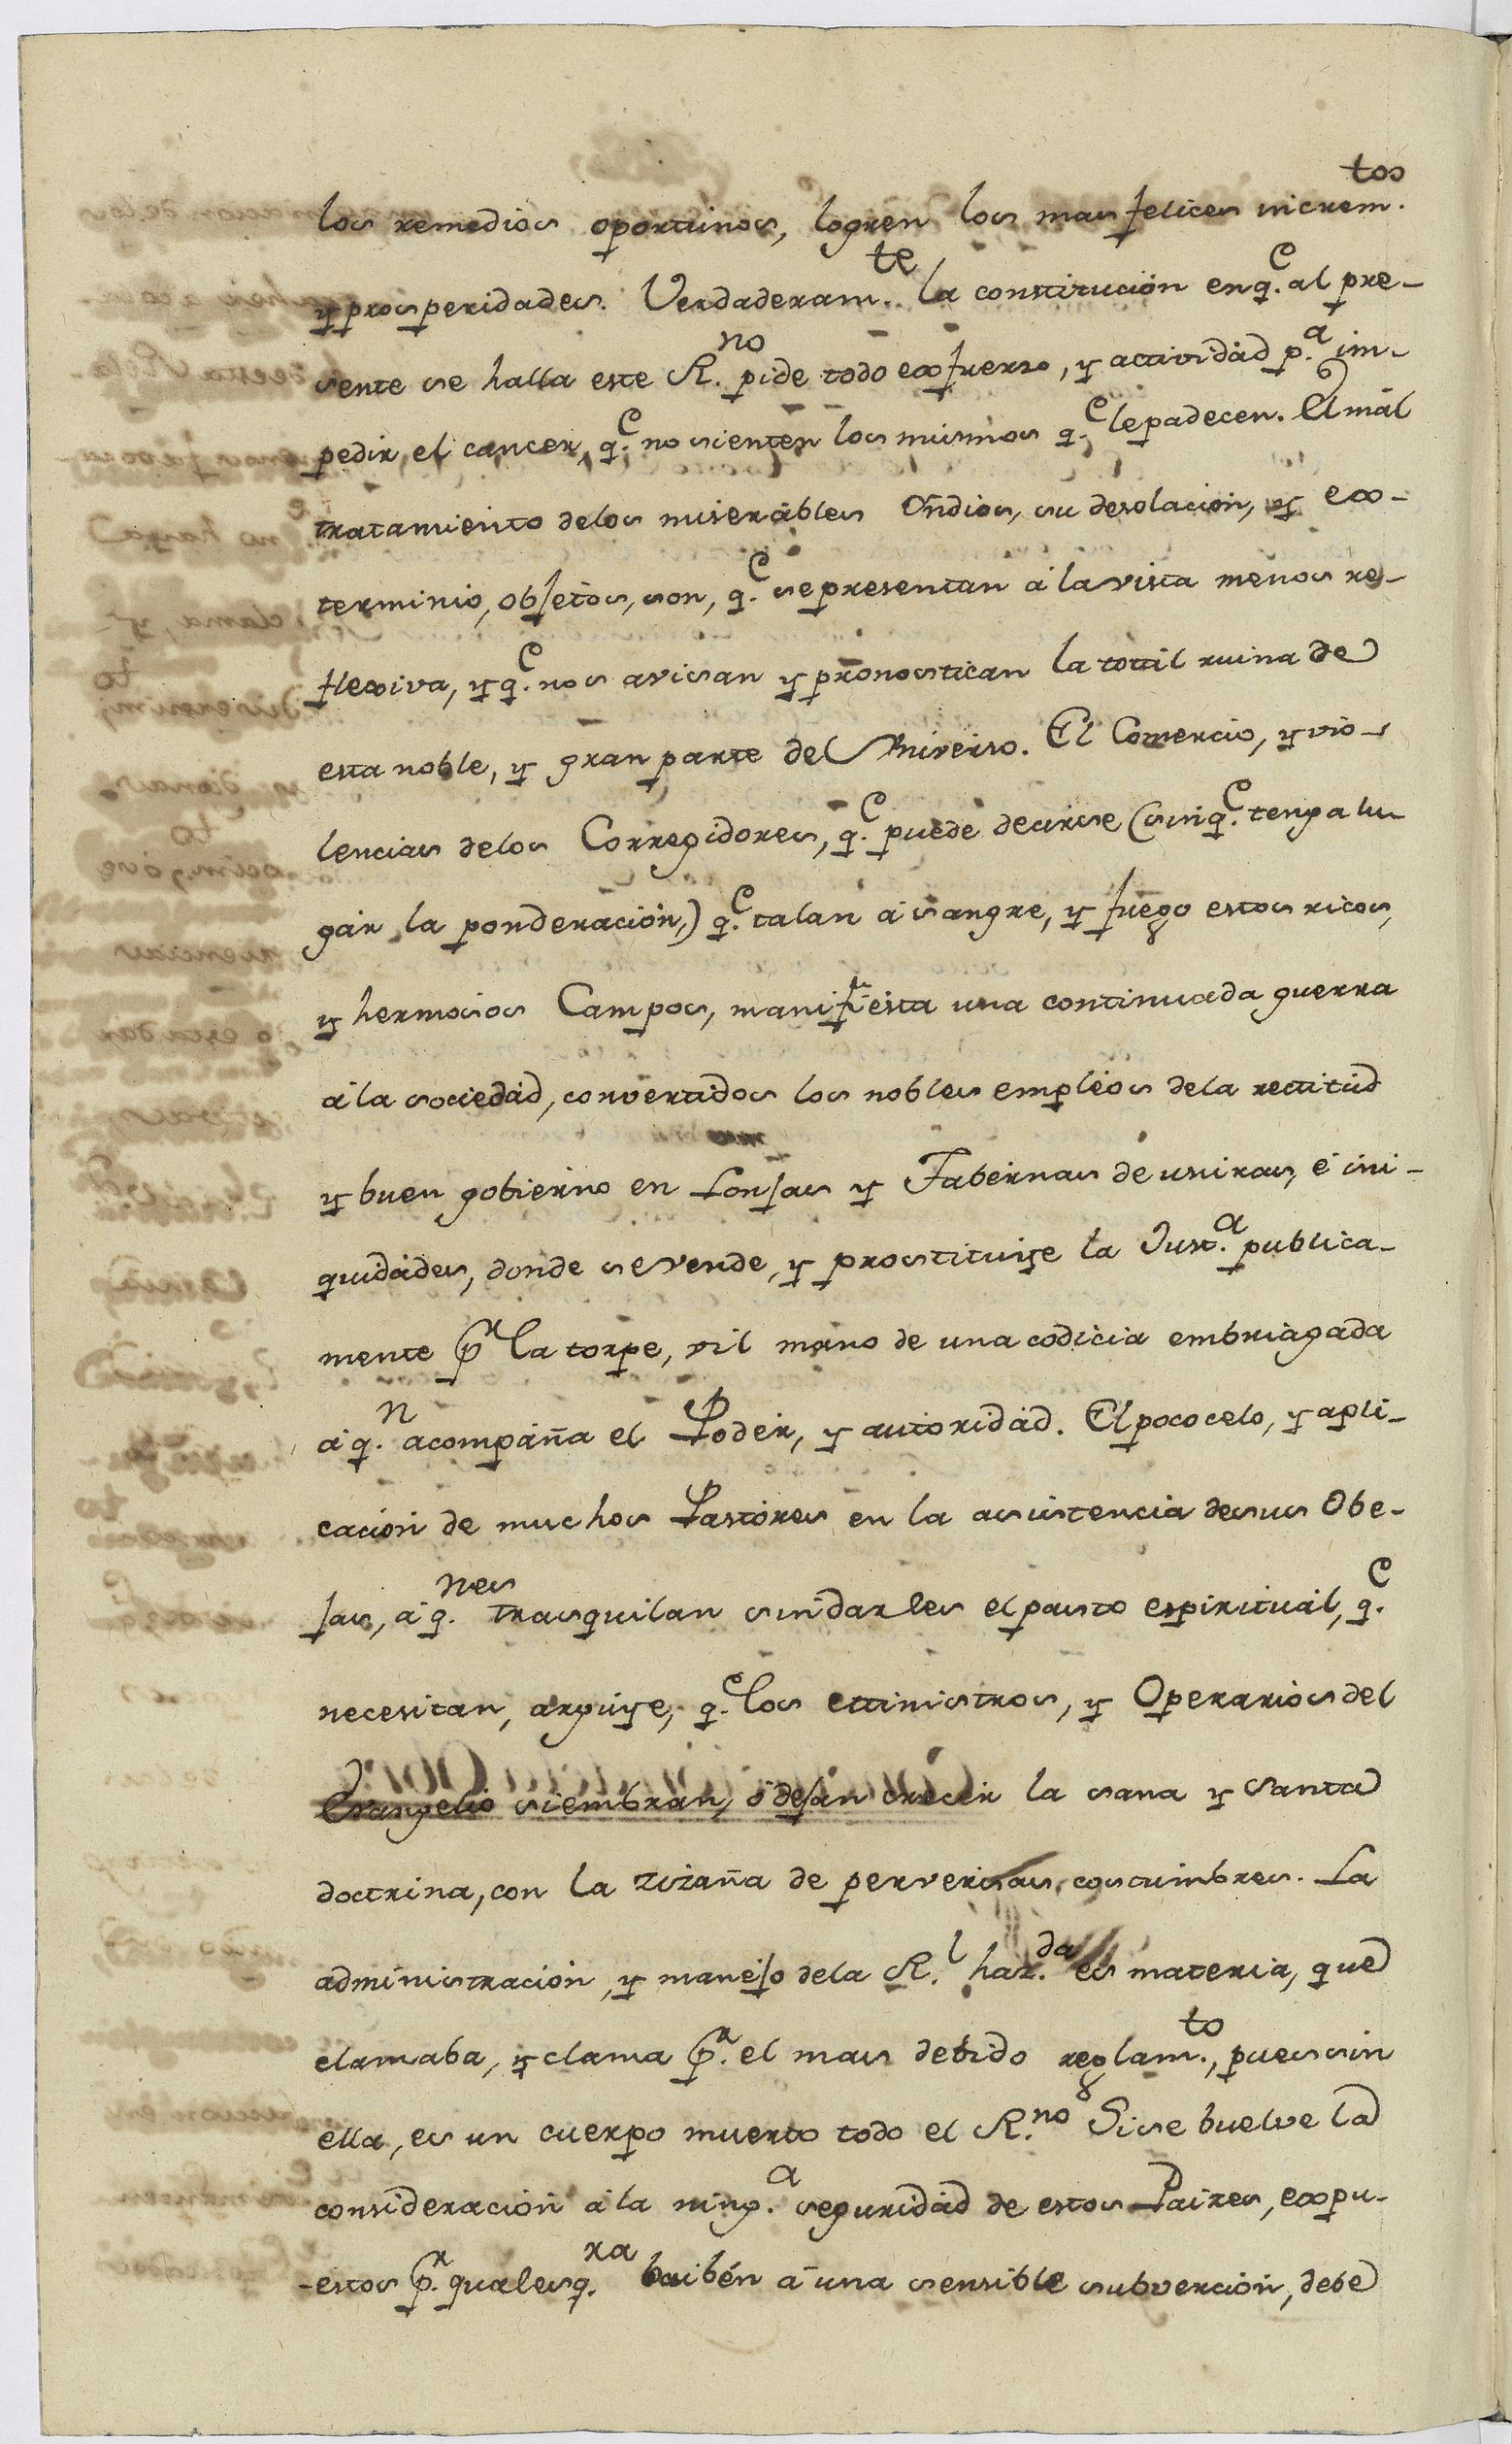 los remedios oportunos, logren los mas felices increm.tos
y prosperidades. Verdaderam.te la constitucion en q.e al pre-
sente se halla este R.no pide todo exfuerzo, y actividad p.a im-
pedir el cancer, q.e no sienten los mismos q.e le padecen. El mál
tratamiento delos miserables Yndios, su desolacion, y ex-
terminio, objetos, son, q.e se presentan á la vista menos re-
flexiva, y q.e nos avisan y pronostican la total ruina de
esta noble, y gran parte del Universo. El Comercio, y vio-
lencias delos Corregidores, q.e puede decirse (sin q.e tenga lu-
gár la ponderación,) q.e talan á sangre, y fuego estos ricos,
y hermosos Campos, manifiesta una continuada guerra
á la sociedad, convertidos los nobles empléos dela rectitud
y buen gobierno en Lonjas y Tabernas de usuras, é ini-
quidádes, donde se vende, y prostituye la Just.a publica-
mente p.r la torpe, vil mano de una codicia embriagada
á q.n acompáña el Podér, y autoridád. El poco celo, y apli-
cacion de muchos Pastores en la asistencia de sus Obe-
jas, á q.nes trasquilan sin darles el pasto espirituál, q.e
necesitan, arguye, q.e los Ministros, y Operarios del
Evangelio siembran, ó dejan crecér la sana y Santa
doctrina, con la zizaña de perversas costumbres. La
administracion, y manejo dela R.l haz.da es materia, que
clamaba, y clama p.r el mas debido reglam.to, pues sin
ella, es un cuerpo muerto todo el R.no Si se buelve la
consideración á la ning.a seguridád de estos Paizes, expu-
-estos p.r qualesq.ra baibén á una sensible subvercion, debe